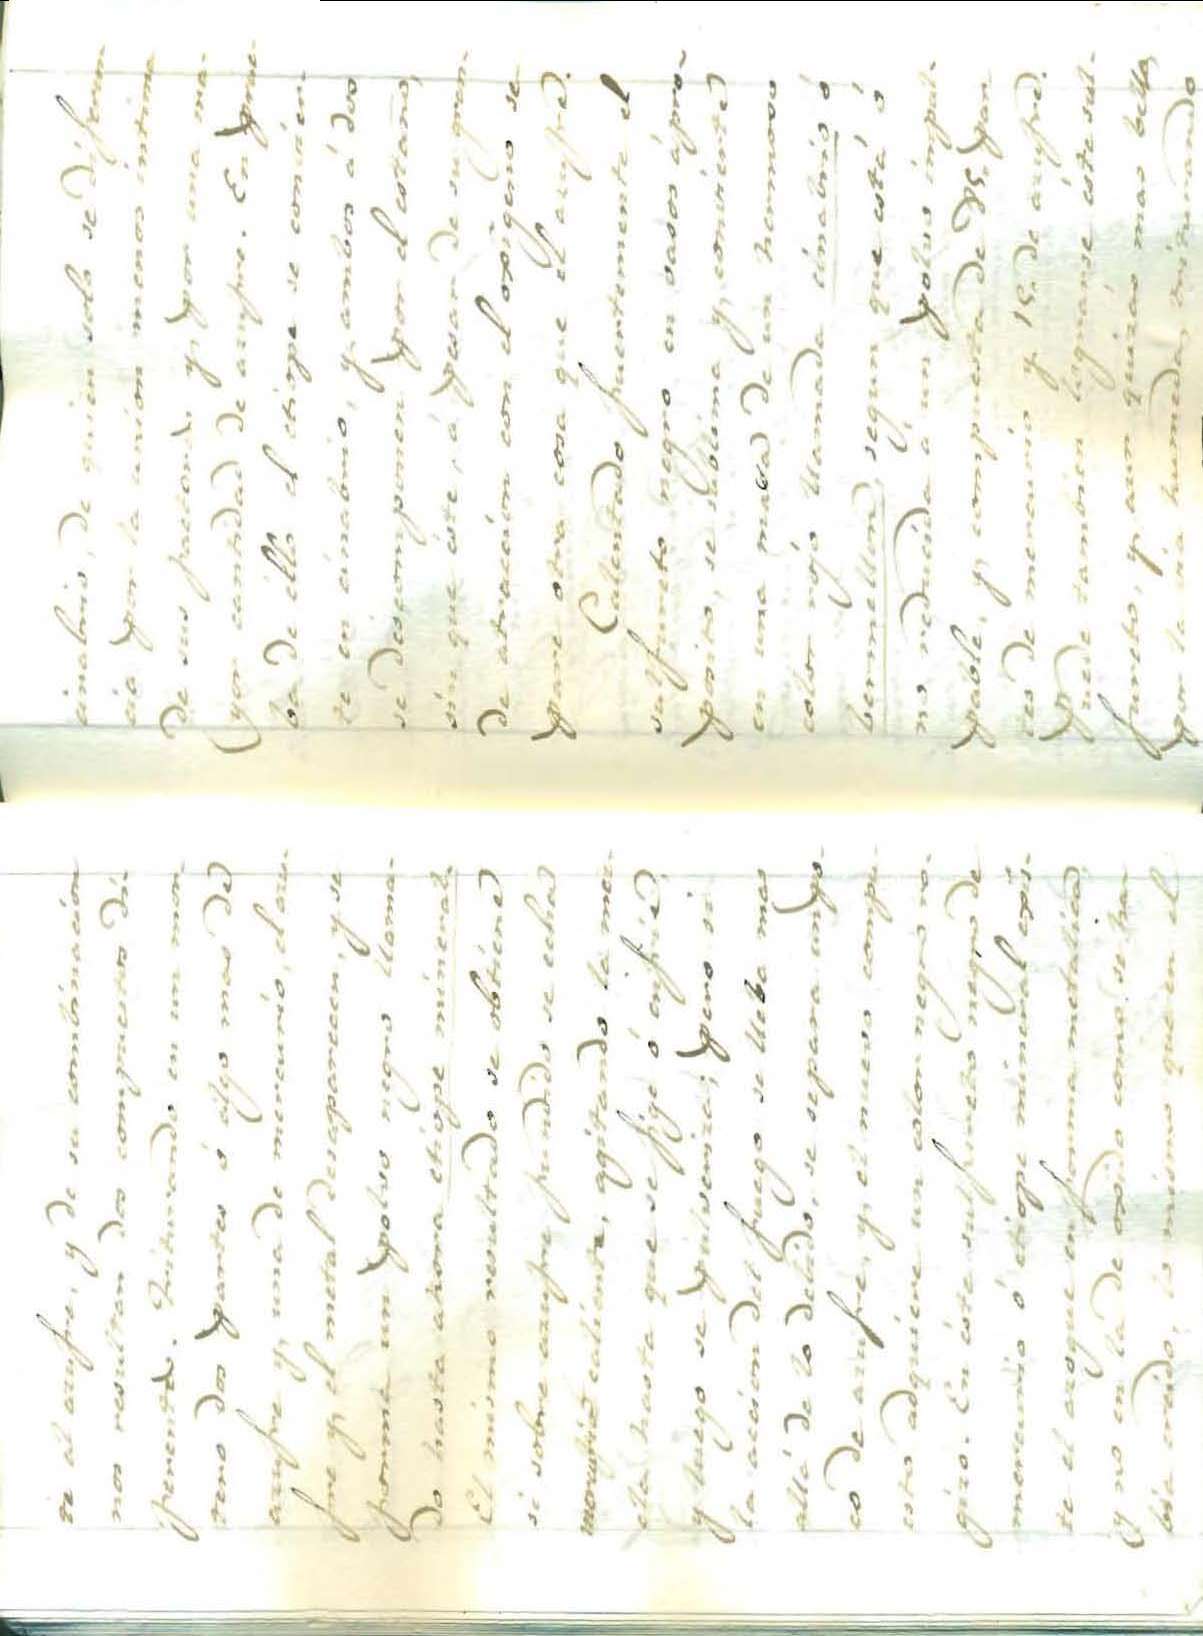 te al azufre, y de su combinacion
nos resultan dos compuestos di-
ferentes. Triturando en un mor-
tero dos partes ó algo mas de
azufre y una de mercurio, el azu-
fre y el metal desaparecen, y se
forma un polvo negro llama-
do hasta ahora etiope mineral.
El mismo resultado se obtiene
si sobre azufre fundido se echa
mercurio caliente, agitando la mez-
cla hasta que se fige ó enfrie,
y luego se pulveriza; pero si
la accion del fuego se lleba mas
allá de lo debido, se separa un po-
co de azufre, y el nuevo compu-
esto adquiere un color negro ro-
gizo. En este sulfureto negro de
mercurio ó etiope mineral exis-
te el azogue en forma metalica
y no en la de oxido como se ha-
bia creido, lo mismo que en el
cinabrio, de quien solo se diferen-
cia por la union menos intima
de sus factores, y por una ma-
yor cantidad de azufre. En prue-
ba de ello el etiope se convier-
te en cinabrio, y ambos á dos
se descomponen por el estaño,
sin que este, á pesar de su gran-
de atraccion con el oxigeno se-
pare otra cosa que el azufre.
Calentado fuertemente el
sulfureto negro en vasos á pro-
posito, se sublima y convierte
en una masa de un hermoso
color rojo llamada cinabrio ó
bermellon, segun que está ó
no reducida á un polvo impal-
pable, y compuesta de 85 par-
tes de mercurio y 15 de azufre.
Puede tambien lograrse este sul-
fureto, y aun quizás mas bello,
por la via humeda, triturando